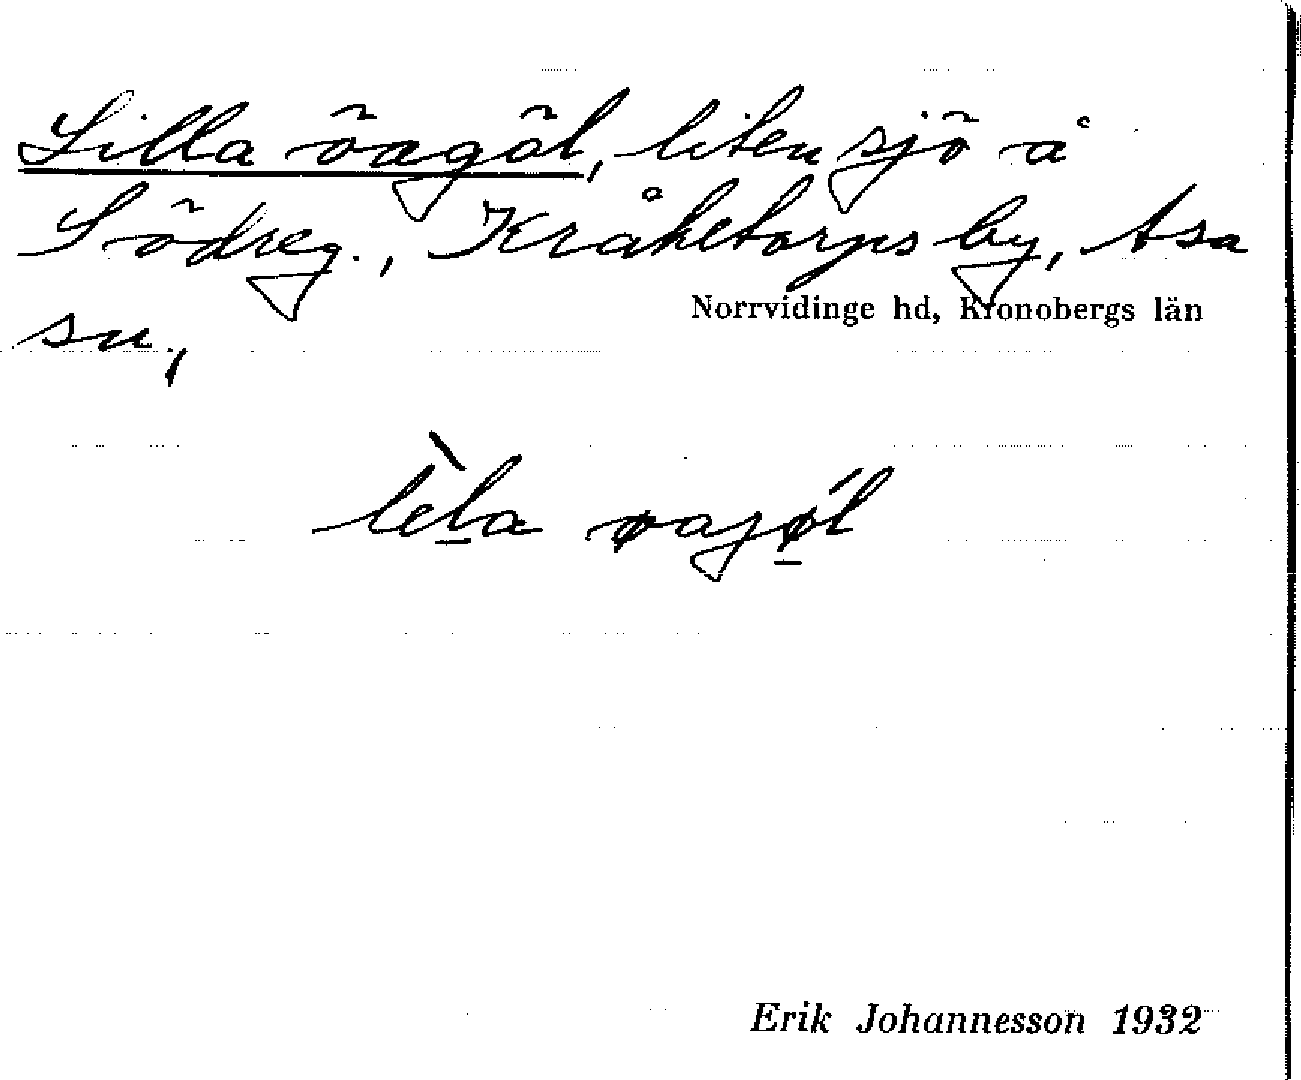 Lilla öagöl, liten sjö å
Södreg., Kråketorps by, Asa
sn,
Norrvidinge hd, Kronobergs län
lèla øajǿl
Erik Johannesson 1932